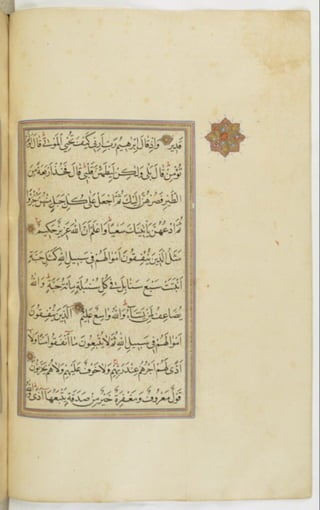 قَدِيرٌ وَاِذْ قَالَ اِبْرٰهِيمُ رَبِّ اَرِنِي كَيْفَ تُحْيِي الْمَوْتٰى قَالَ اَوَلَمْ
تُؤْمِنْ قَالَ بَلٰى وَلٰكِنْ لِيَطْمَئِنَّ قَلْبِي قَالَ فَخُذْ اَرْبَعَةً مِنَ
الطَّيْرِ فَصُرْهُنَّ اِلَيْكَ ثُمَّ اجْعَلْ عَلٰى كُلِّ جَبَلٍ مِنْهُنَّ جُزْءًا
ثُمَّ ادْعُهُنَّ يَأْتِينَكَ سَعْيًا وَاعْلَمْ اَنَّ اللّٰهَ عَزِيزٌ حَكِيمٌ
مَثَلُ الَّذِينَ يُنْفِقُونَ اَمْوَالَهُمْ فِي سَبِيلِ اللّٰهِ كَمَثَلِ حَبَّةٍ
اَنْبَتَتْ سَبْعَ سَنَابِلَ فِي كُلِّ سُنْبُلَةٍ مِائَةُ حَبَّةٍ وَاللّٰهُ
يُضَاعِفُ لِمَنْ يَشَاءُ وَاللّٰهُ وَاسِعٌ عَلِيمٌ اَلَّذِينَ يُنْفِقُونَ
اَمْوَالَهُمْ فِي سَبِيلِ اللّٰهِ ثُمَّ لَا يُتْبِعُونَ مَا اَنْفَقُوا مَنًّا وَلَا
اَذًى لَهُمْ اَجْرُهُمْ عِنْدَ رَبِّهِمْ وَلَا خَوْفٌ عَلَيْهِمْ وَلَا هُمْ يَحْزَنُونَ
قَوْلٌ مَعْرُوفٌ وَمَغْفِرَةٌ خَيْرٌ مِنْ صَدَقَةٍ يَتْبَعُهَا اَذًى وَاللّٰهُ